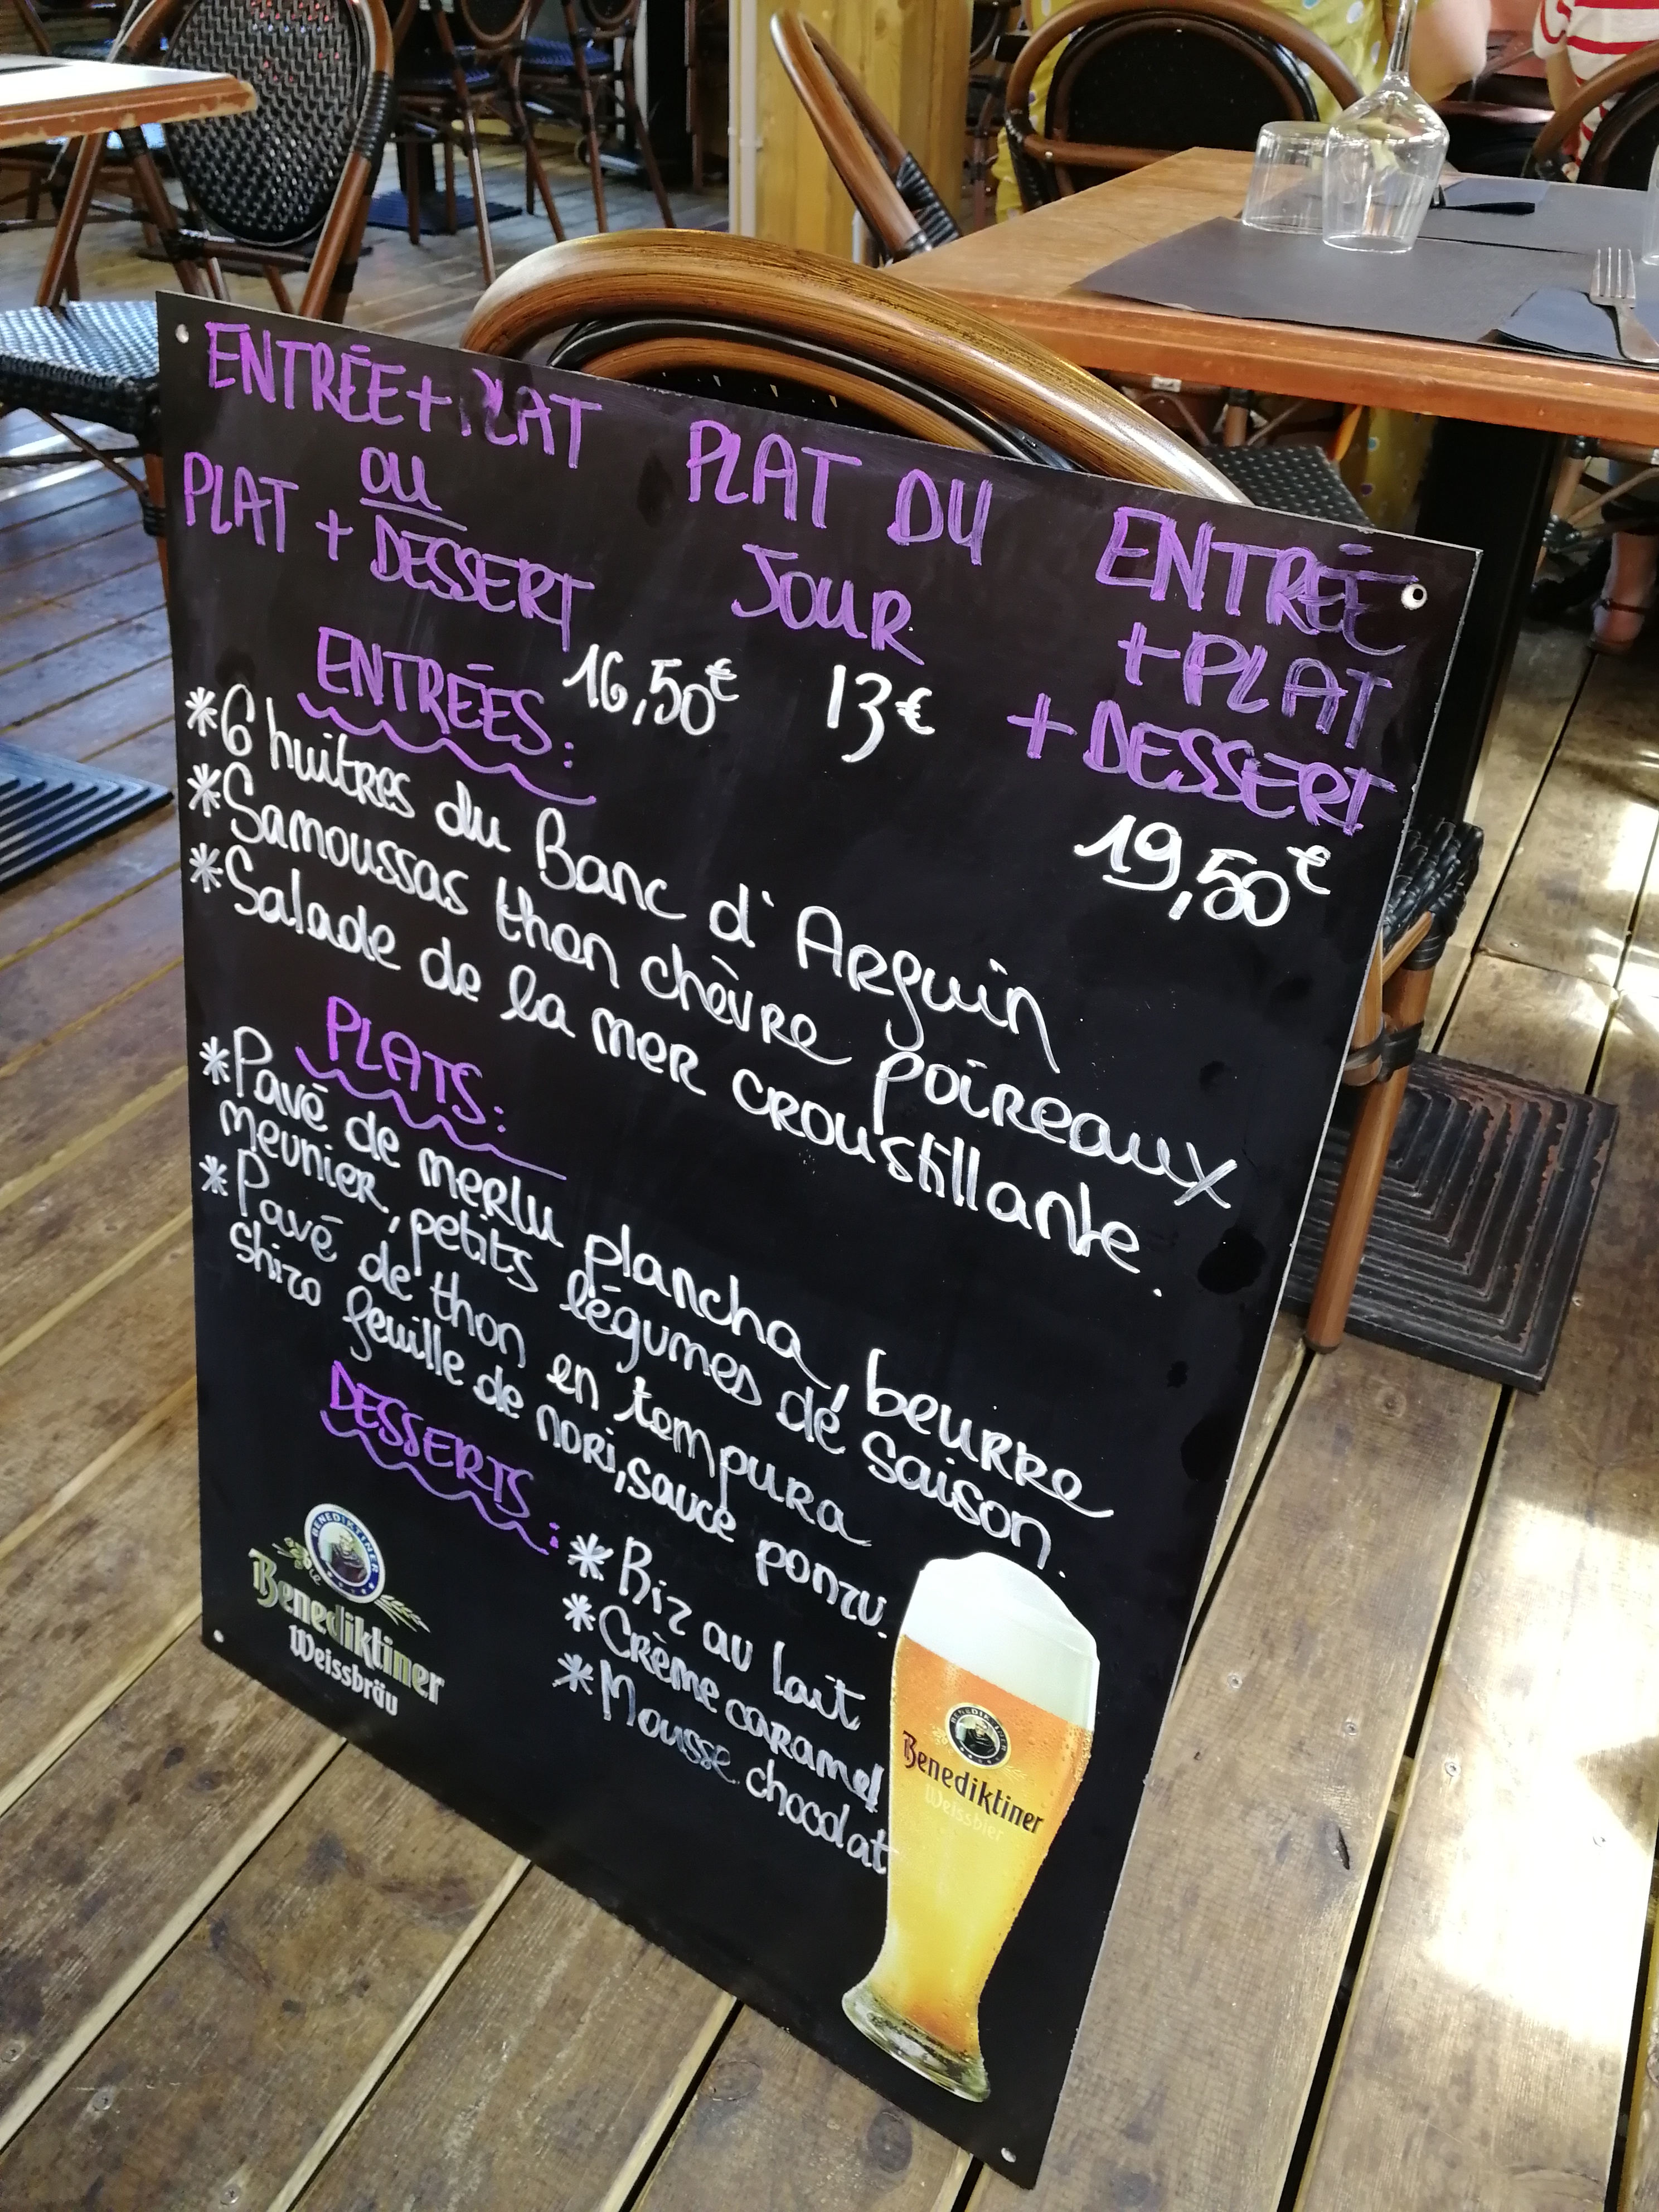 ENTRÉE + PLAT
OU
PLAT + DESSERT
16,50€
PLAT DU
JOUR
13€
ENTRÉE
+ PLAT
+ DESSERT
19,50€
ENTRÉES :
*6 huitres du Banc d'Arguin
*Samoussas thon chèvre poireaux
*Salade de la mer croustillante.
PLATS :
*Pavé de merlu plancha, beurre
meunier, petits légumes de saison.
*Pavé de thon en tempura
shizo feuille de nori, sauce ponzu.
DESSERTS :
*Riz au lait
*Crème caramel
*Mousse chocolat
BENEDIKTINER
Benediktiner
Weissbräu
BENEDIKTINER
Benediktiner
Weissbier